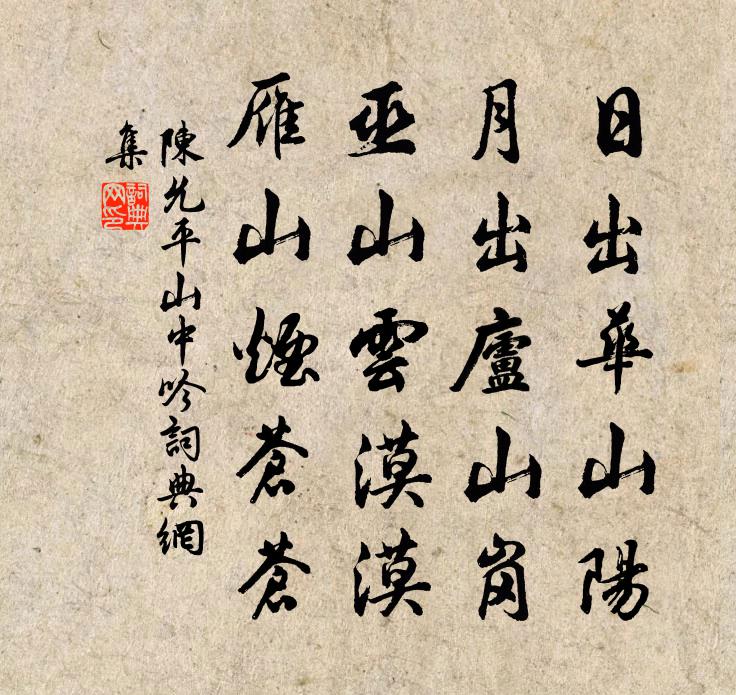 日出華山陽
月出廬山崗
巫山雲漠漠
雁山煙蒼蒼
陳允平山中吟詞典網
集
詞典
网印